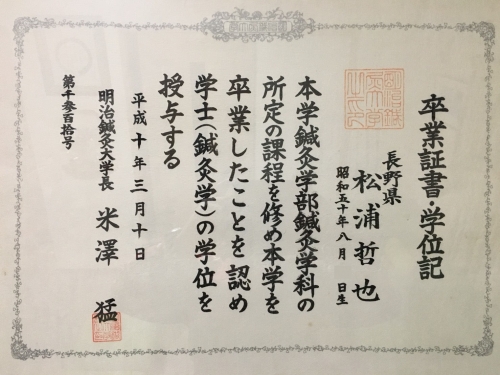 卒業証書・学位記
長野県
松浦哲也
昭和五十年八月 日生
本学鍼灸学部鍼灸学科の
所定の課程を修め本学を
卒業したことを認め
学士(鍼灸学)の学位を
授与する
平成十年三月十日
明治鍼灸大学長 米澤 猛
第千参百拾号